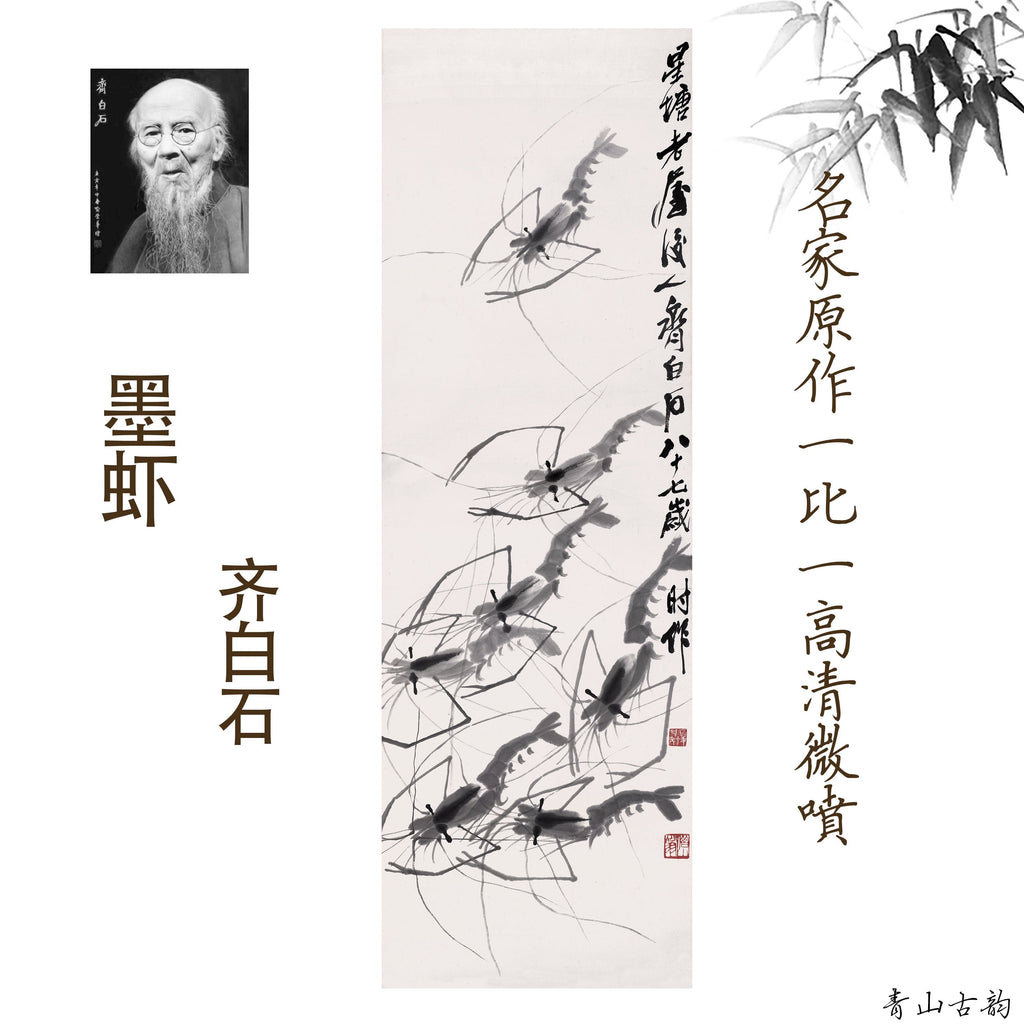 齊白石
墨虾
齐白石
星塘老屋後人齊白石八十七歲
时作
名家原作一比一高清微噴
青山古韵